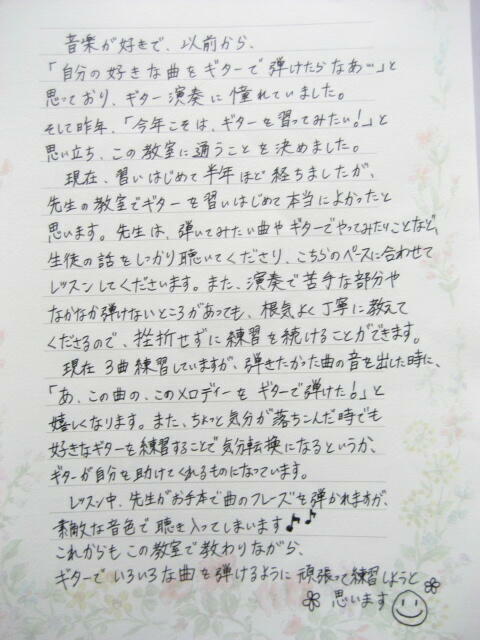 音楽が好きで、以前から、
「自分の好きな曲をギターで弾けたらなあ…」と
思っており、ギター演奏に憧れていました。
そして昨年、「今年こそは、ギターを習ってみたい!」と
思い立ち、この教室に通うことを決めました。
現在、習いはじめて半年ほど経ちましたが、
先生の教室でギターを習いはじめて本当によかったと
思います。先生は、弾いてみたい曲やギターでやってみたいことなど、
生徒の話をしっかり聴いてくださり、こちらのペースに合わせて
レッスンしてくださいます。また、演奏で苦手な部分や
なかなか弾けないところがあっても、根気よく丁寧に教えて
くださるので、挫折せずに練習を続けることができます。
現在3曲練習していますが、弾きたかった曲の音を出した時に、
「あ、この曲の、このメロディーをギターで弾けた!」と
嬉しくなります。また、ちょっと気分が落ちこんだ時でも
好きなギターを練習することで気分転換になるというか、
ギターが自分を助けてくれるものになっています。
レッスン中、先生がお手本で曲のフレーズを弾かれますが、
素敵な音色で聴き入ってしまいます♪♪
これからもこの教室で教わりながら、
ギターでいろいろな曲を弾けるように頑張って練習しようと
思います